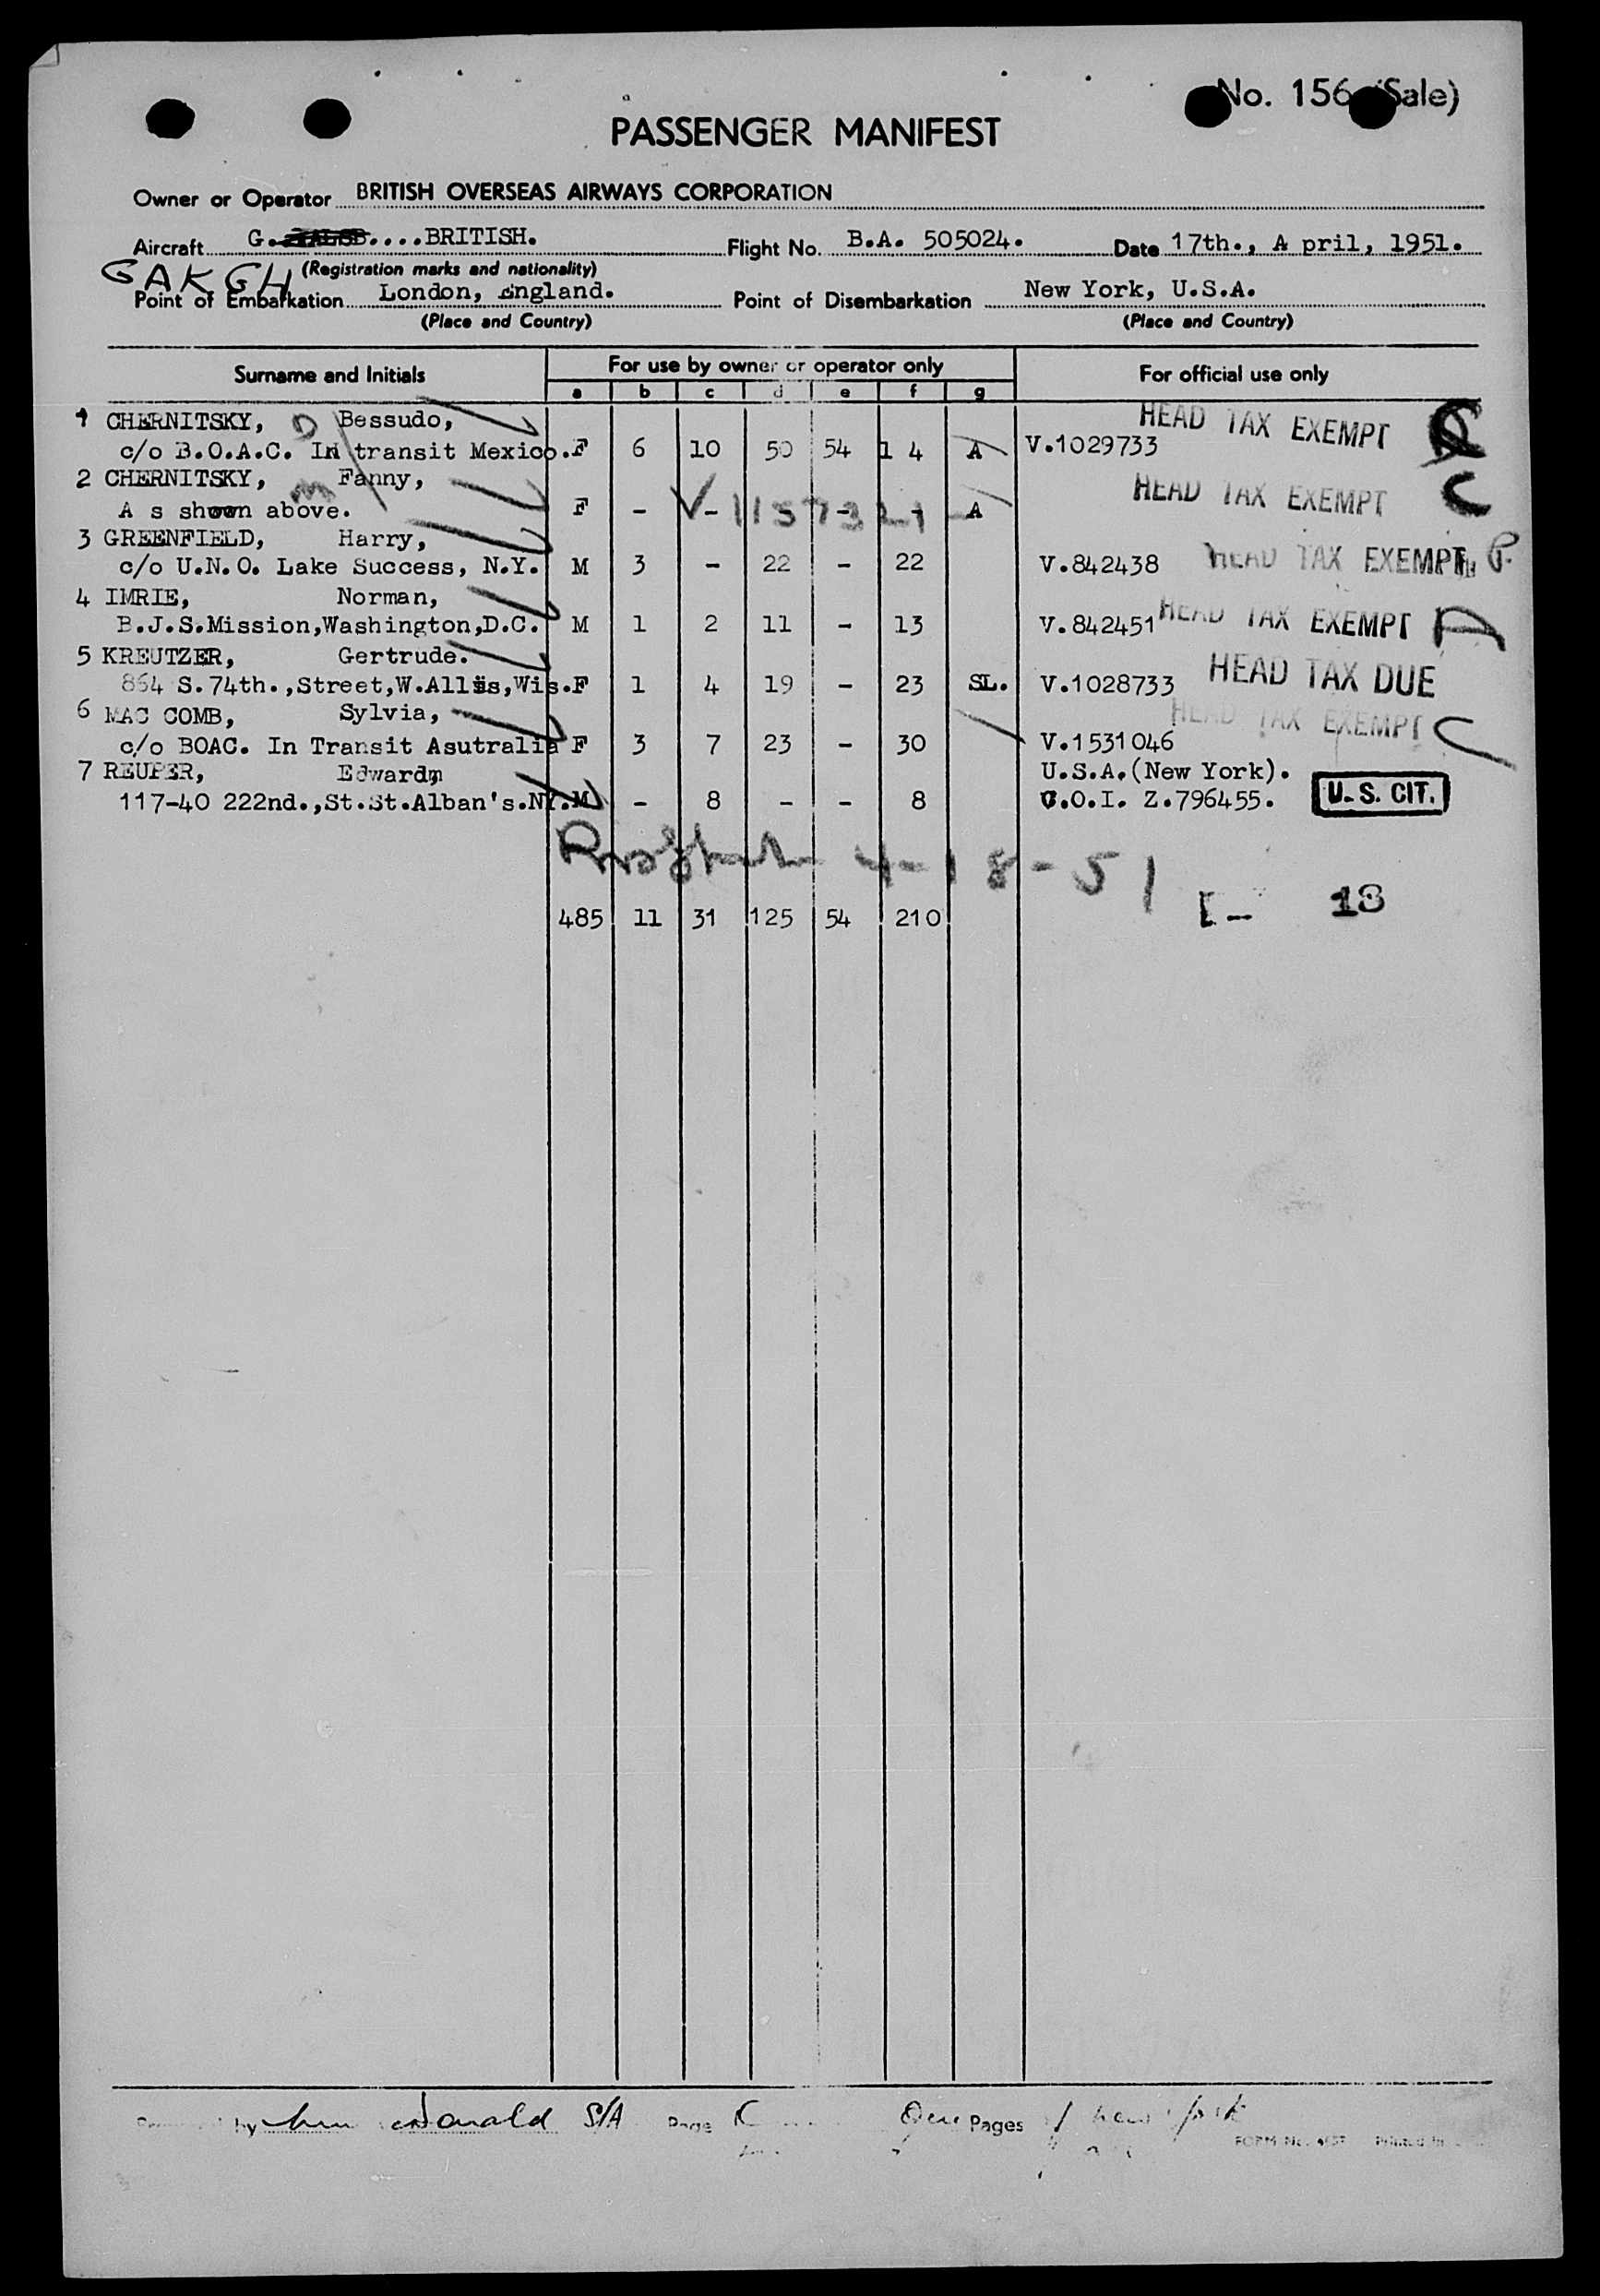 No. 156 (Sale)
PASSENGER MANIFEST
Owner or Operator BRITISH OVERSEAS AIRWAYS CORPORATION
Aircraft G. ....BRITISH. Flight No. B.A. 505024. Date 17th., A pril, 1951.
GAKGH (Registration marks and nationality)
Point of Embarkation London, England. Point of Disembarkation New York, U.S.A.
(Place and Country) (Place and Country)
Surname and Initials For use by owner or operator only For official use only
a b c d e f g
1 CHERNITSKY, D Bessudo, HEAD TAX EXEMPT
c/o B.O.A.C. In transit Mexico. F 6 10 50 54 1 4 A V.1029733
2 CHERNITSKY, m Fanny, HEAD TAX EXEMPT C
A s shown above. F - - - - A
3 GREENFIELD, Harry,
c/o U.N.O. Lake Success, N.Y. M 3 - 22 - 22 V.842438 HEAD TAX EXEMPT
4 IMRIE, Norman,
B.J.S.Mission,Washington,D.C. M 1 2 11 - 13 V.842451 HEAD TAX EXEMPT A
5 KREUTZER, Gertrude.
864 S.74th.,Street,W.Allis,Wis. F 1 4 19 - 23 SL. V.1028733 HEAD TAX DUE
6 MAC COMB, Sylvia, HEAD TAX EXEMPT C
c/o BOAC. In Transit Asutralia F 3 7 23 - 30 V.1531046
7 REUPER, Edward, U.S.A.(New York).
117-40 222nd.,St.St.Alban's.NY. M - 8 - - 8 C.O.I. Z.796455. U.S. CIT.
4-18-51
485 11 31 125 54 210 13
by Donald S/A Page One Pages